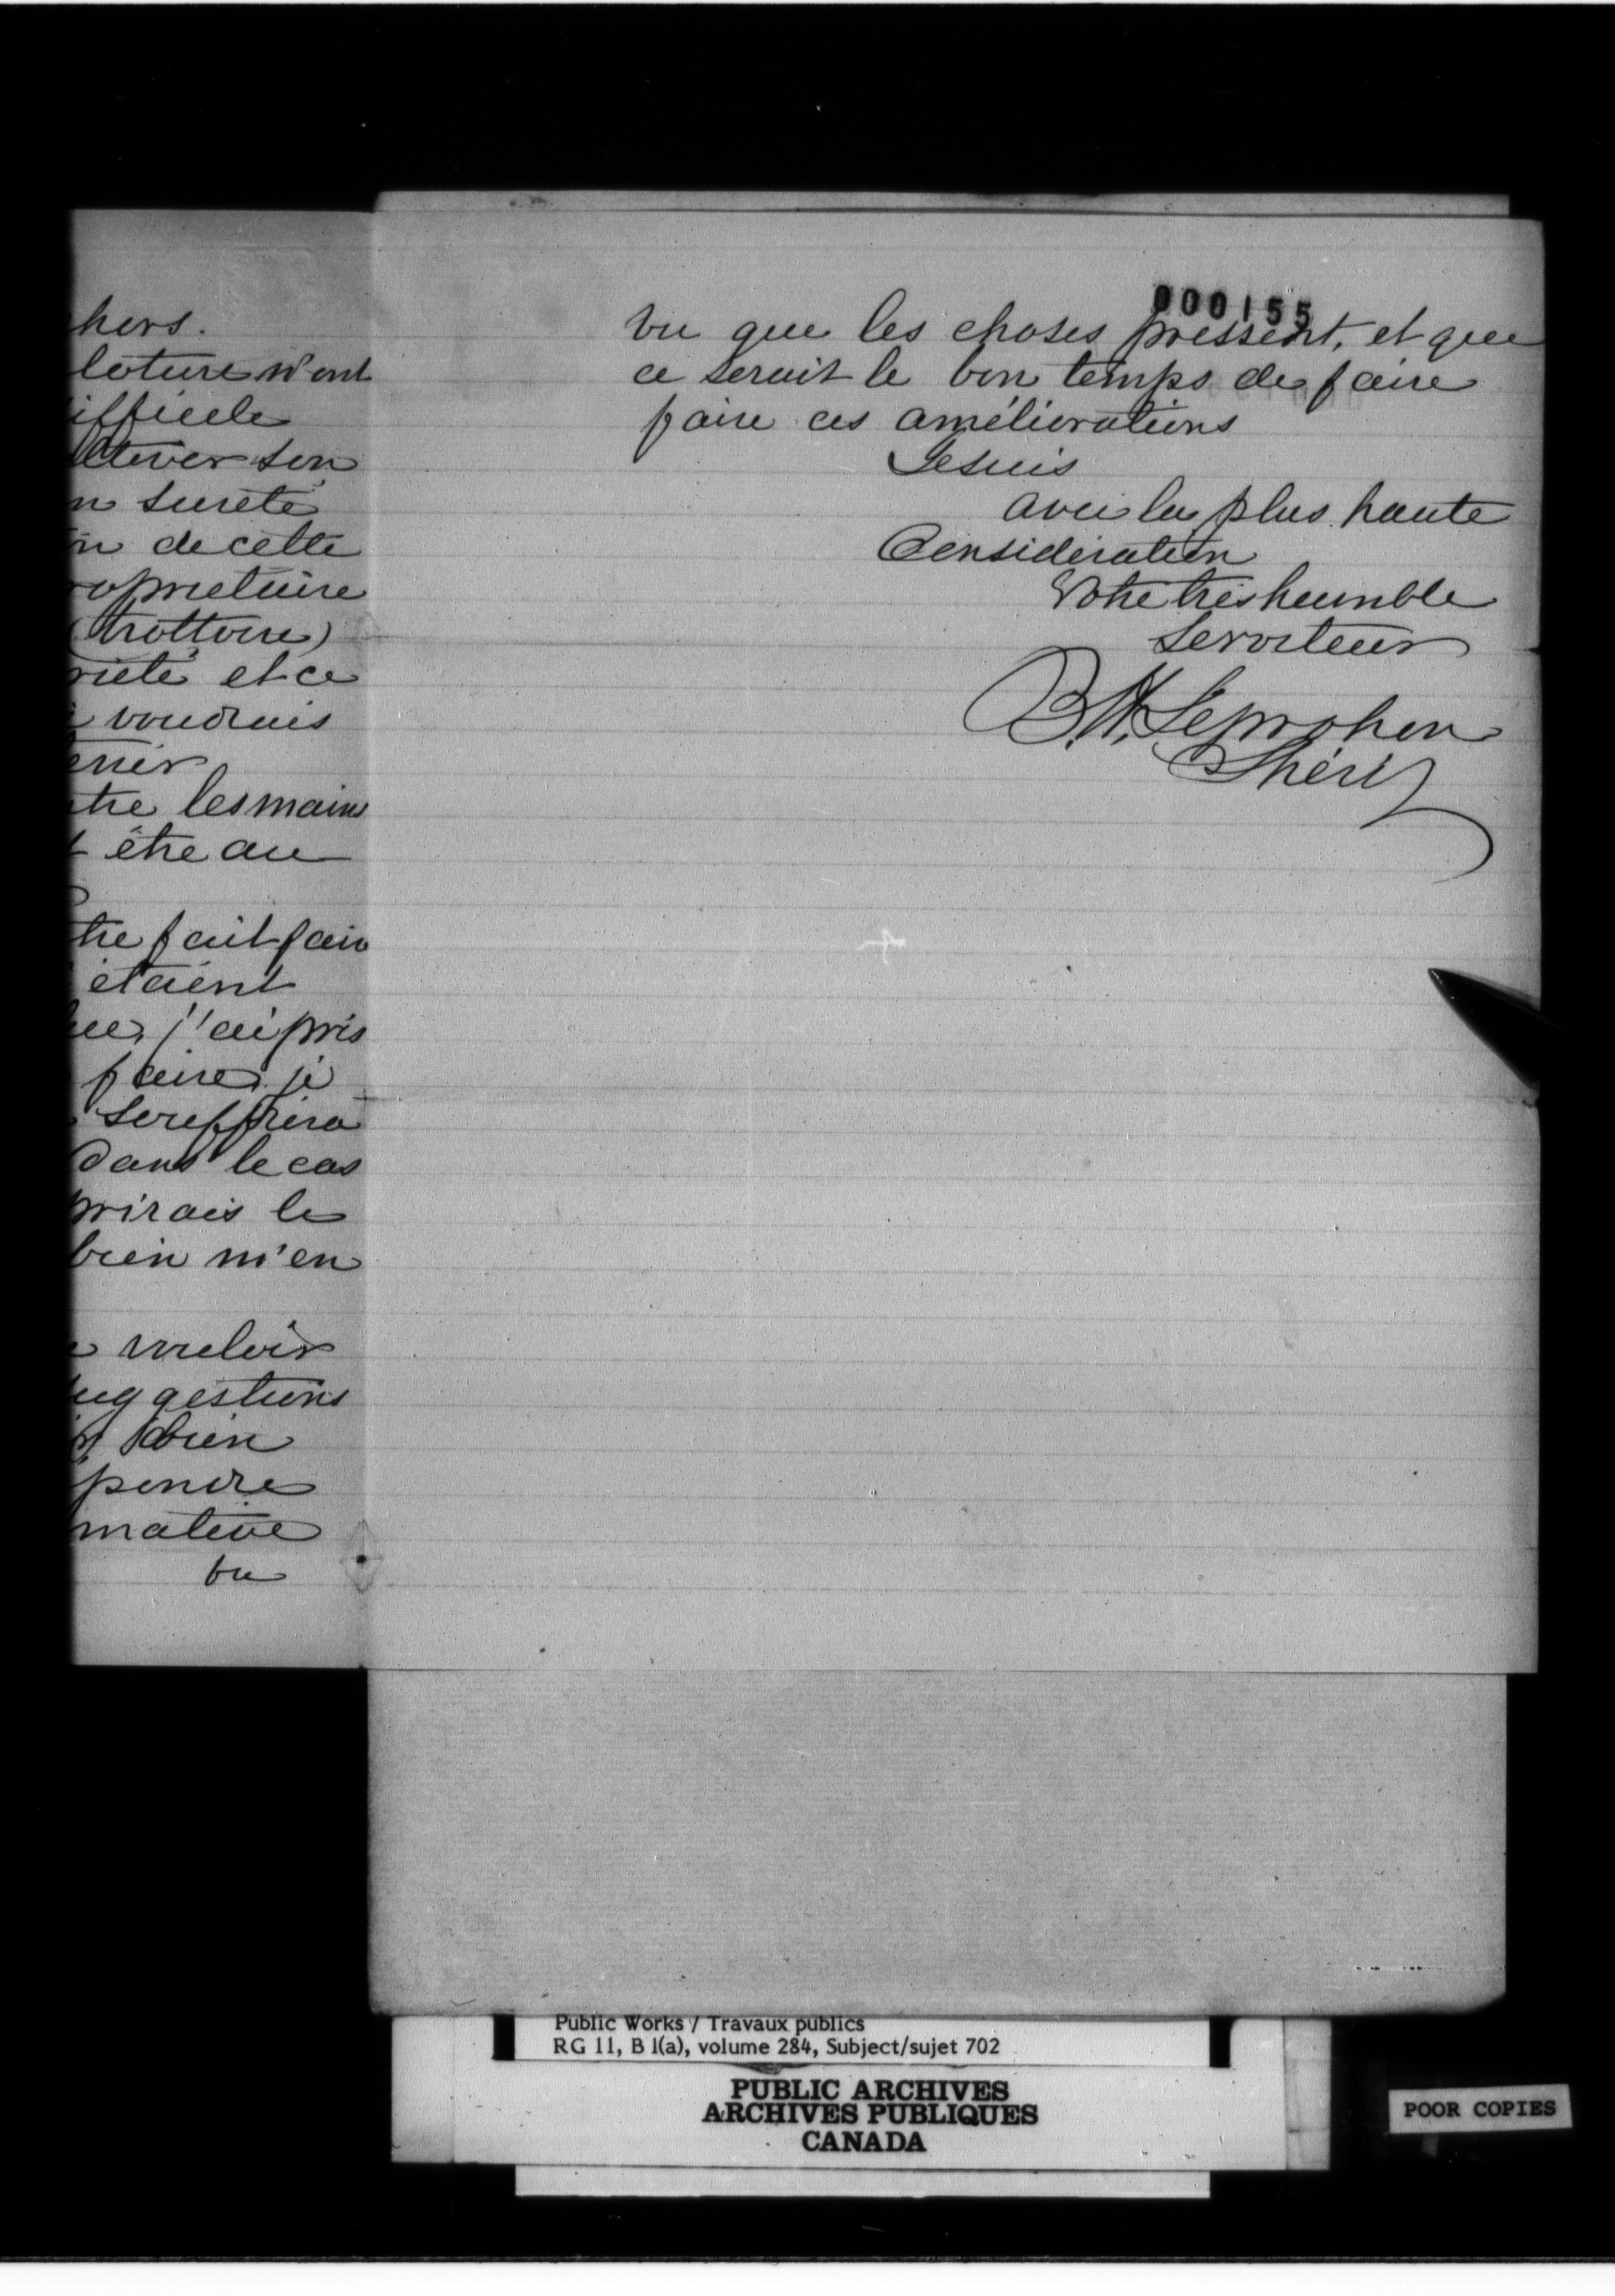 hors.
loture n'ont
ifficile
ctiver son
n sureté
n de cette
roprietaire
(trottoire)
rieté et ce
voudrais
enir
tre les mains
t être au
tre fait fair
étaient
j'ai pris
faire, je
souffrira
Dans le cas
prirais le
bien m'en
vouloir
suggestions
bien
pondre
mative
vu
000155
vu que les choses pressent, et que
ce serait le bon temps de faire
faire ces améliorations
Je suis
avec la plus haute
Considération
Votre très humble
Serviteur
B.H. Leprohon
Shérif
Public Works / Travaux publics
RG 11, B 1(a), volume 284, Subject/sujet 702
PUBLIC ARCHIVES
ARCHIVES PUBLIQUES
CANADA
POOR COPIES